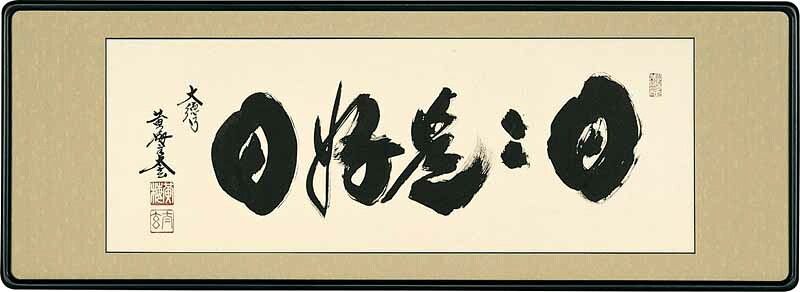 日〻是好日
大徳寺
黄梅 玄